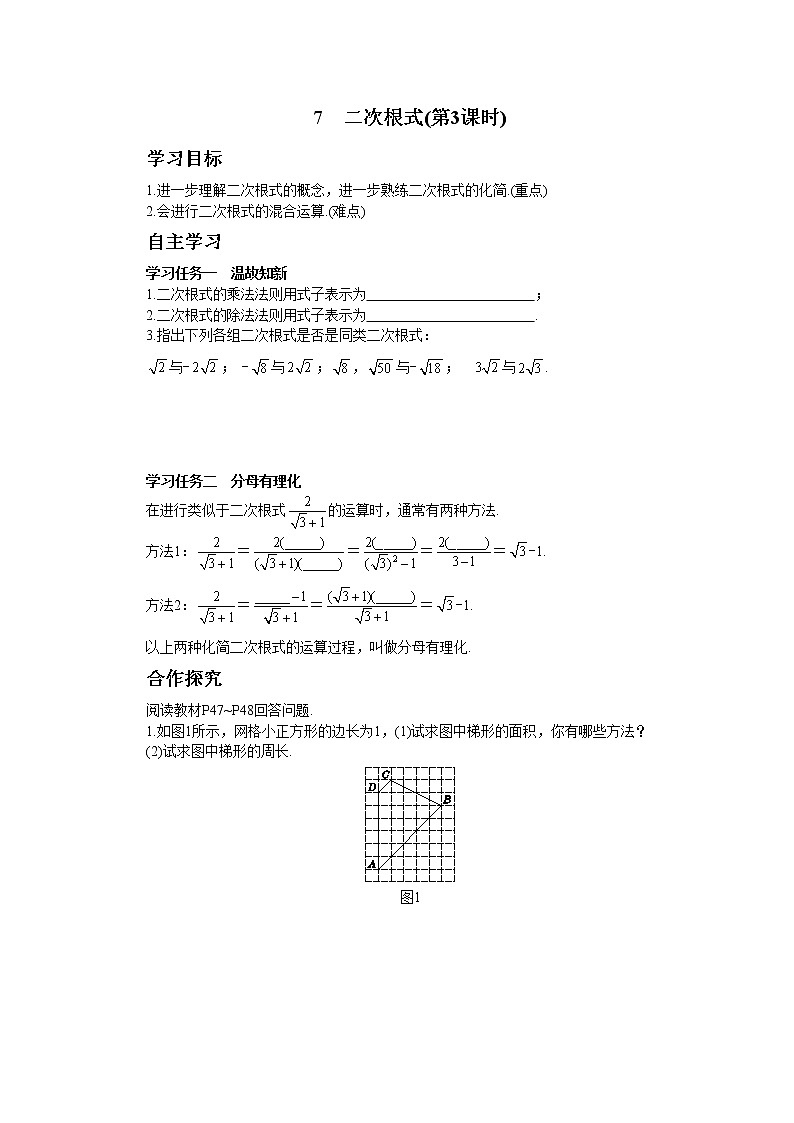 7 二次根式(第3课时)
学习目标
1.进一步理解二次根式的概念,进一步熟练二次根式的化简.(重点)
2.会进行二次根式的混合运算.(难点)
自主学习
学习任务一 温故知新
1.二次根式的乘法法则用式子表示为________________________;
2.二次根式的除法法则用式子表示为________________________.
3.指出下列各组二次根式是否是同类二次根式:
√2与-2√2; -√8与2√2;√8,√50与-√18; 3√2与2√3.
学习任务二 分母有理化
在进行类似于二次根式2/(√3+1)的运算时,通常有两种方法.
方法1:2/(√3+1)=2(_____)/(√3+1)(_____)=2(_____)/((√3)²-1)=2(_____)/(3-1)=√3-1.
方法2:2/(√3+1)=(_____-1)/(√3+1)=(√3+1)(_____)/(√3+1)=√3-1.
以上两种化简二次根式的运算过程,叫做分母有理化.
合作探究
阅读教材P47~P48回答问题.
1.如图1所示,网格小正方形的边长为1,(1)试求图中梯形的面积,你有哪些方法?
(2)试求图中梯形的周长.
C
D
B
A
图1